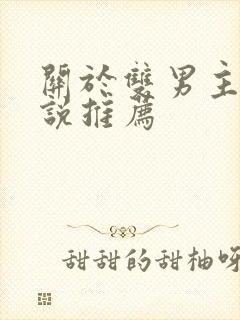 關於雙男主
說推薦
甜甜的甜柚呀